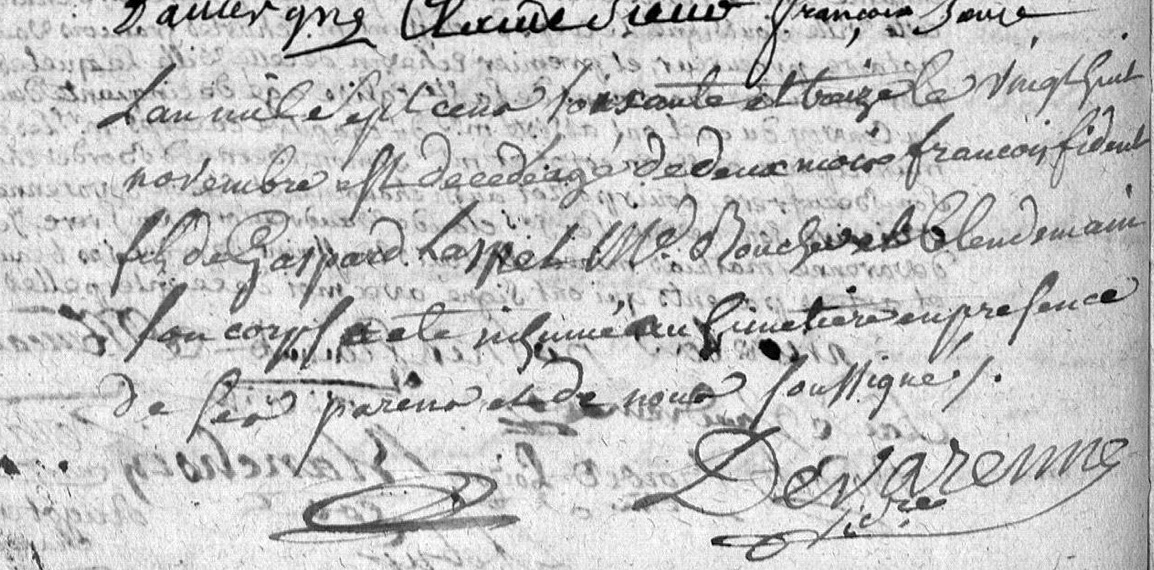 Dauvergne françois
L'an mil e sept cens soixante et treize le vingt huit
novembre est decede agé de deux mois françois fident
fils de Gaspard Laspet Md. Boucher et le lendemain
son corps a ete inhumé au simetiere en presence
de ses parens et de nous soussignés /.
Devarenne
vicre